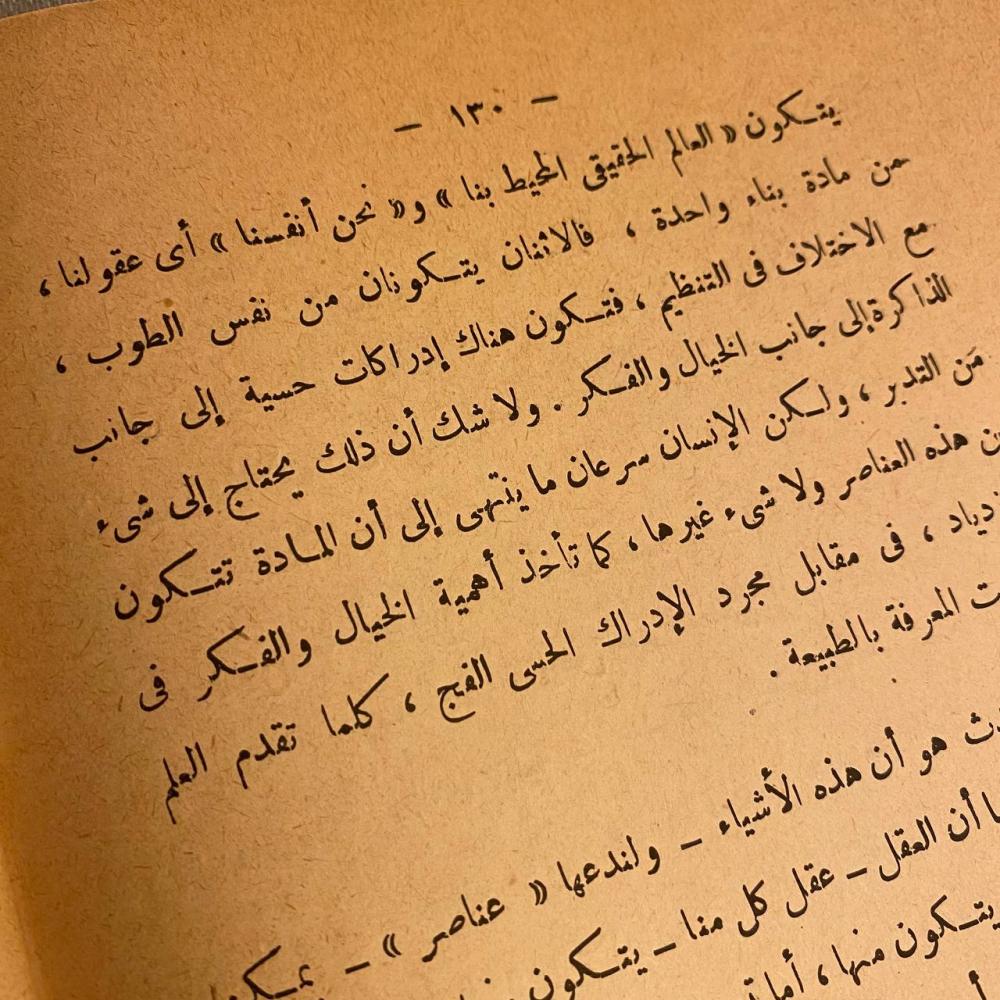 — ١٣٠ —
يتكون « العالم الحقيقى المحيط بنا » و « نحن أنفسنا » أى عقولنا ،
من مادة بناء واحدة ، فالاثنان يتكونان من نفس الطوب ،
مع الاختلاف فى التنظيم ، فتكون هناك إدراكات حسية إلى جانب
الذاكرة إلى جانب الخيال والفكر . ولا شك أن ذلك يحتاج إلى شىء
من التدبر ، ولكن الإنسان سرعان ما ينتهى إلى أن المادة تتكون
هذه العناصر ولا شىء غيرها ، كما تأخذ أهمية الخيال والفكر فى
، فى مقابل مجرد الإدراك الحسى الفج ، كلما تقدم العلم
المعرفة بالطبيعة .
هو أن هذه الأشياء — ولندعها « عناصر » —
أن العقل — عقل كل منا — يتكون
يتكون منها ، أما